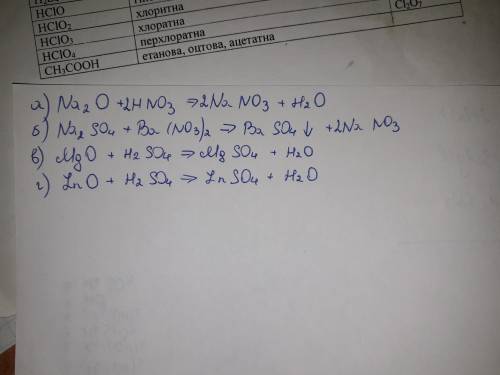 HClO хлоритна Cl₂O₇
HClO₂ хлоратна
HClO₃ перхлоратна
HClO₄ етанова, оцтова, ацетатна
CH₃COOH
а) Na₂O + 2HNO₃ ⇒ 2NaNO₃ + H₂O
б) Na₂SO₄ + Ba(NO₃)₂ ⇒ BaSO₄↓ + 2NaNO₃
в) MgO + H₂SO₄ ⇒ MgSO₄ + H₂O
г) ZnO + H₂SO₄ ⇒ ZnSO₄ + H₂O